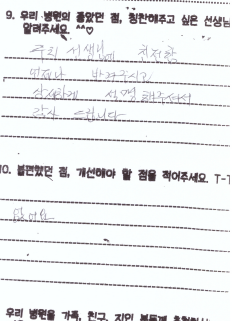 9. 우리 병원의 좋았던 점, 칭찬해주고 싶은 선생님
알려주세요. ^^♡
주치 선생님께 친절함
언제나 반겨주시고
상세하게 설명해주셔서
감사 드립니다
10. 불편했던 점, 개선해야 할 점을 적어주세요. T-T
없어요
우리 병원을 가족, 친구, 지인